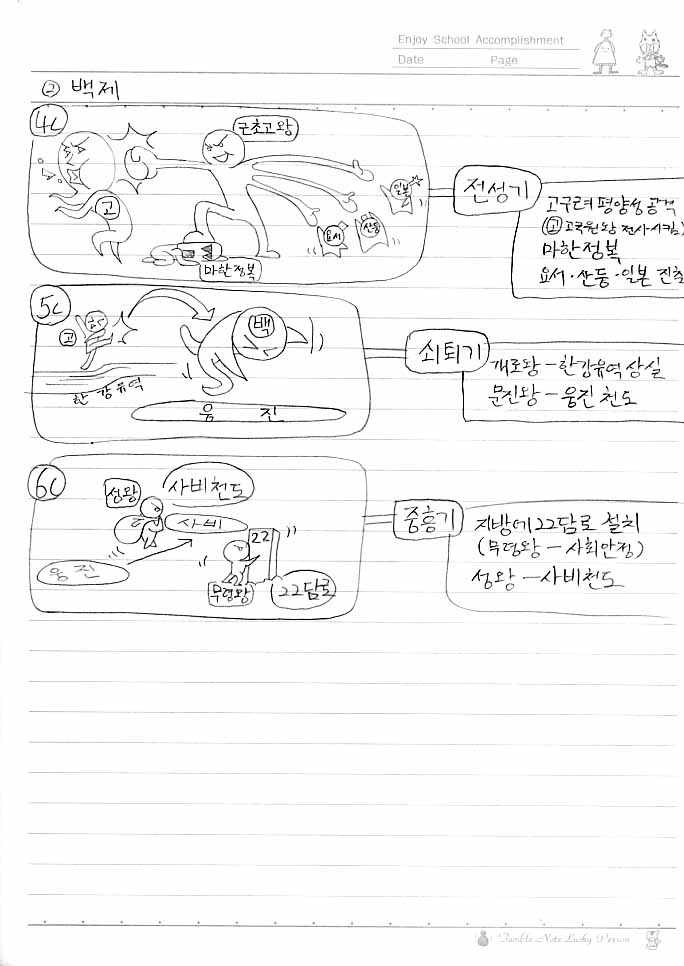 Enjoy School Accomplishment
Date Page
② 백제
4C
근초고왕
고
일본
요서
산둥
마한정복
전성기
고구려 평양성 공격
(고 고국원왕 전사시킴)
마한정복
요서·산둥·일본 진출
5C
고
백
한강유역
웅 진
쇠퇴기
개로왕 - 한강유역 상실
문진왕 - 웅진 천도
6C
성왕
사비천도
사비
웅진
22
무령왕
22담로
중흥기
지방에 22담로 설치
(무령왕 - 사회안정)
성왕 - 사비천도
Tumble Note Lucky Person